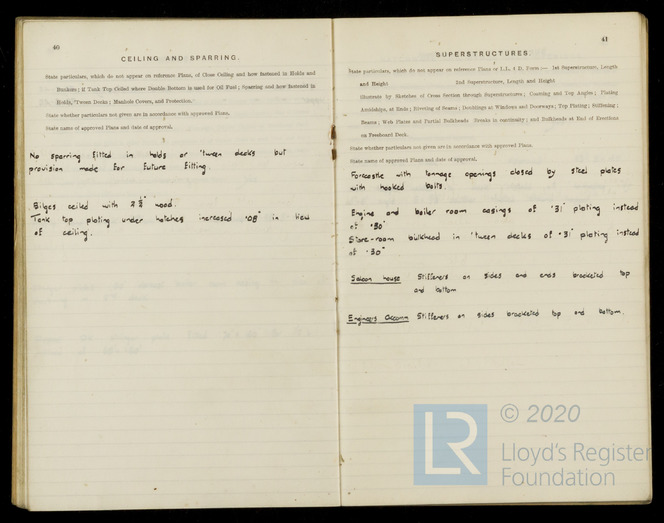 40
CEILING AND SPARRING.
State particulars, which do not appear on reference Plans, of Close Ceiling and how fastened in Holds and
Bunkers; if Tank Top Ceiled where Double Bottom is used for Oil Fuel; Sparring and how fastened in
Holds, 'Tween Decks; Manhole Covers, and Protection.
State whether particulars not given are in accordance with approved Plans.
State name of approved Plans and date of approval.
No sparring fitted in holds or 'tween decks but
provision made for future fitting.
Bilges ceiled with 2½" wood.
Tank top plating under hatches increased .08" in lieu
of ceiling.
41
SUPERSTRUCTURES.
State particulars, which do not appear on reference Plans or L.L. 4 D. Form:— 1st Superstructure, Length
and Height 2nd Superstructure, Length and Height
Illustrate by Sketches of Cross Section through Superstructures; Coaming and Top Angles; Plating
Amidships, at Ends; Riveting of Seams; Doublings at Windows and Doorways; Top Plating; Stiffening;
Beams; Web Plates and Partial Bulkheads Breaks in continuity; and Bulkheads at End of Erections
on Freeboard Deck.
State whether particulars not given are in accordance with approved Plans.
State name of approved Plans and date of approval.
Forecastle with tonnage openings closed by steel plates
with hooked bolts.
Engine and boiler room casings of .31" plating instead
of .30"
Store-room bulkhead in 'tween decks of .31" plating instead
of .30"
Saloon house Stiffeners on sides and ends bracketed top
and bottom
Engineers Accomm Stiffeners on sides bracketed top and bottom.
LR © 2020
Lloyd's Register
Foundation